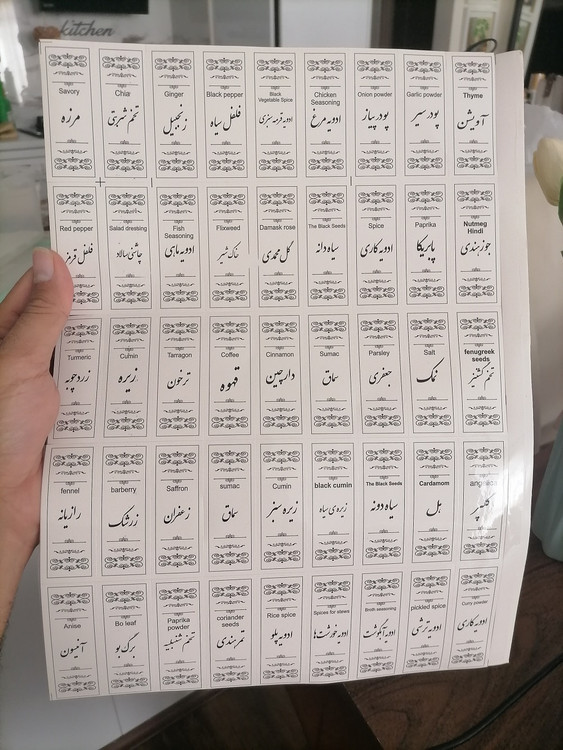 kitchen
Savory
مرزه
Chia
تخم شربتی
Ginger
زنجبیل
Black pepper
فلفل سیاه
Black
Vegetable Spice
ادویه قرمه سبزی
Chicken
Seasoning
ادویه مرغ
Onion powder
پودر پیاز
Garlic powder
پودر سیر
Thyme
آویشن
Red pepper
فلفل قرمز
Salad dressing
چاشنی سالاد
Fish
Seasoning
ادویه ماهی
Flixweed
خاکشیر
Damask rose
گل محمدی
The Black Seeds
سیاه دانه
Spice
ادویه کاری
Paprika
پاپریکا
Nutmeg
Hindi
جوز هندی
Turmeric
زردچوبه
Cumin
زیره
Tarragon
ترخون
Coffee
قهوه
Cinnamon
دارچین
Sumac
سماق
Parsley
جعفری
Salt
نمک
fenugreek
seeds
تخم گشنیز
fennel
رازیانه
barberry
زرشک
Saffron
زعفران
sumac
سماق
Cumin
زیره سبز
black cumin
زیره ی سیاه
The Black Seeds
سیاه دونه
Cardamom
هل
angelica
گلپر
Anise
آنیسون
Bo leaf
برگ بو
Paprika
powder
تخم شنبلیله
coriander
seeds
تمرهندی
Rice spice
ادویه پلو
Spices for stews
ادویه خورشت ها
Broth seasoning
ادویه آبگوشت
pickled spice
ادویه ترشی
Curry powder
ادویه کاری